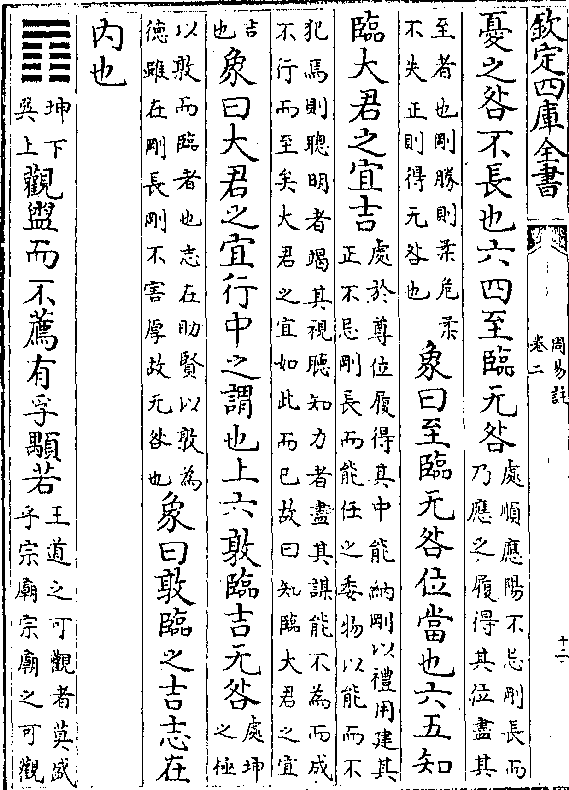 欽定四庫全書
周易註
卷二
十二
憂之咎不長也六四至臨无咎處順應陽不忌剛長而乃應之履得其位盡其
至者也剛勝則柔危柔不失正則得无咎也象曰至臨无咎位當也六五知
臨大君之宜吉處於尊位履得其中能納剛以禮用建其正不忌剛長而能任之委物以能而不
犯焉則聰明者竭其視聽知力者盡其謀能不為而成不行而至矣大君之宜如此而已故曰知臨大君之宜
吉也象曰大君之宜行中之謂也上六敦臨吉无咎處坤之極
以敦而臨者也志在助賢以敦為德雖在剛長剛不害厚故无咎也象曰敦臨之吉志在
內也
䷓坤下巽上觀盥而不薦有孚顒若王道之可觀者莫盛乎宗廟宗廟之可觀